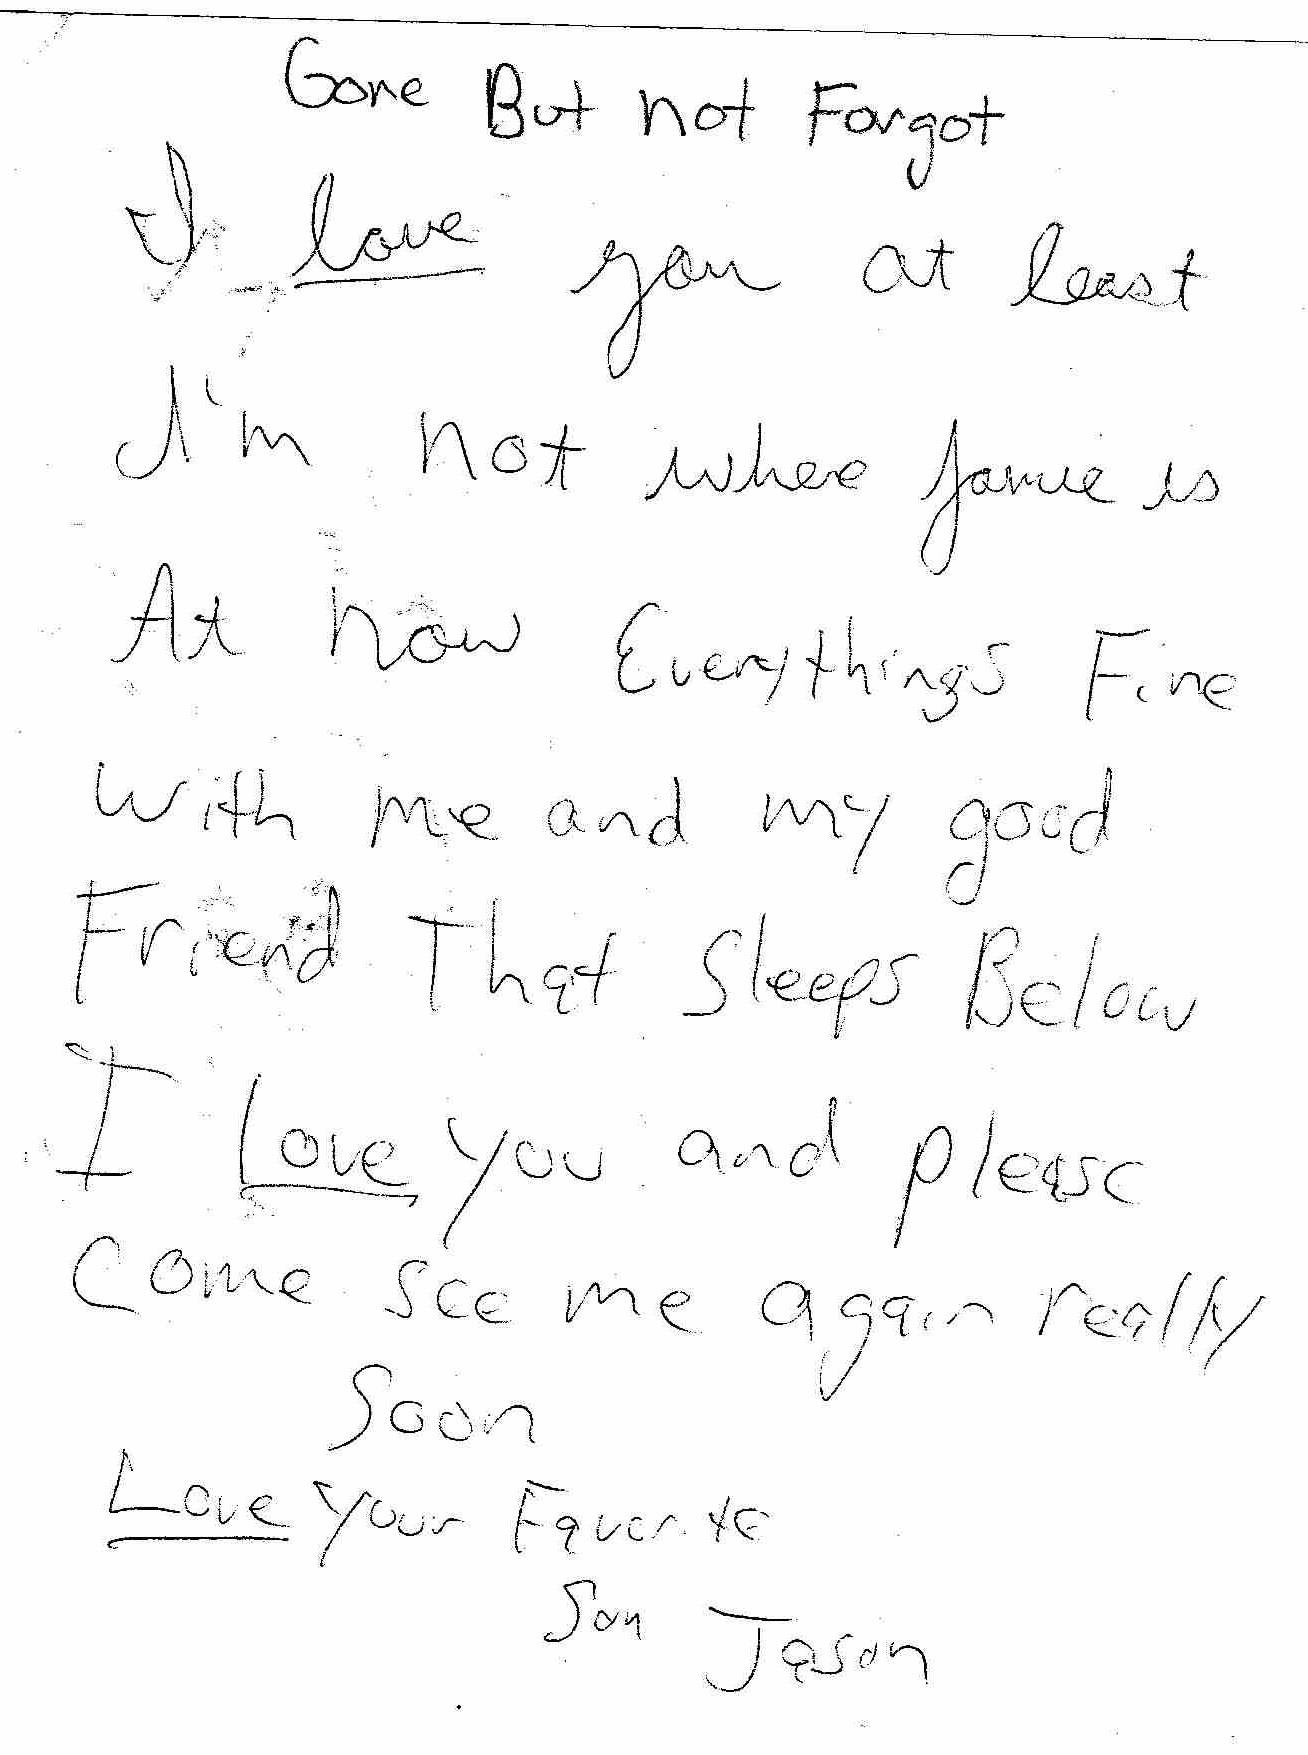 Gone But not Forgot
I love you at least
I'm not where Jamie is
At now Everythings Fine
With me and my good
Friend That Sleeps Below
I Love you and please
Come See me again really
Soon
Love Your Favorite
Son Jason